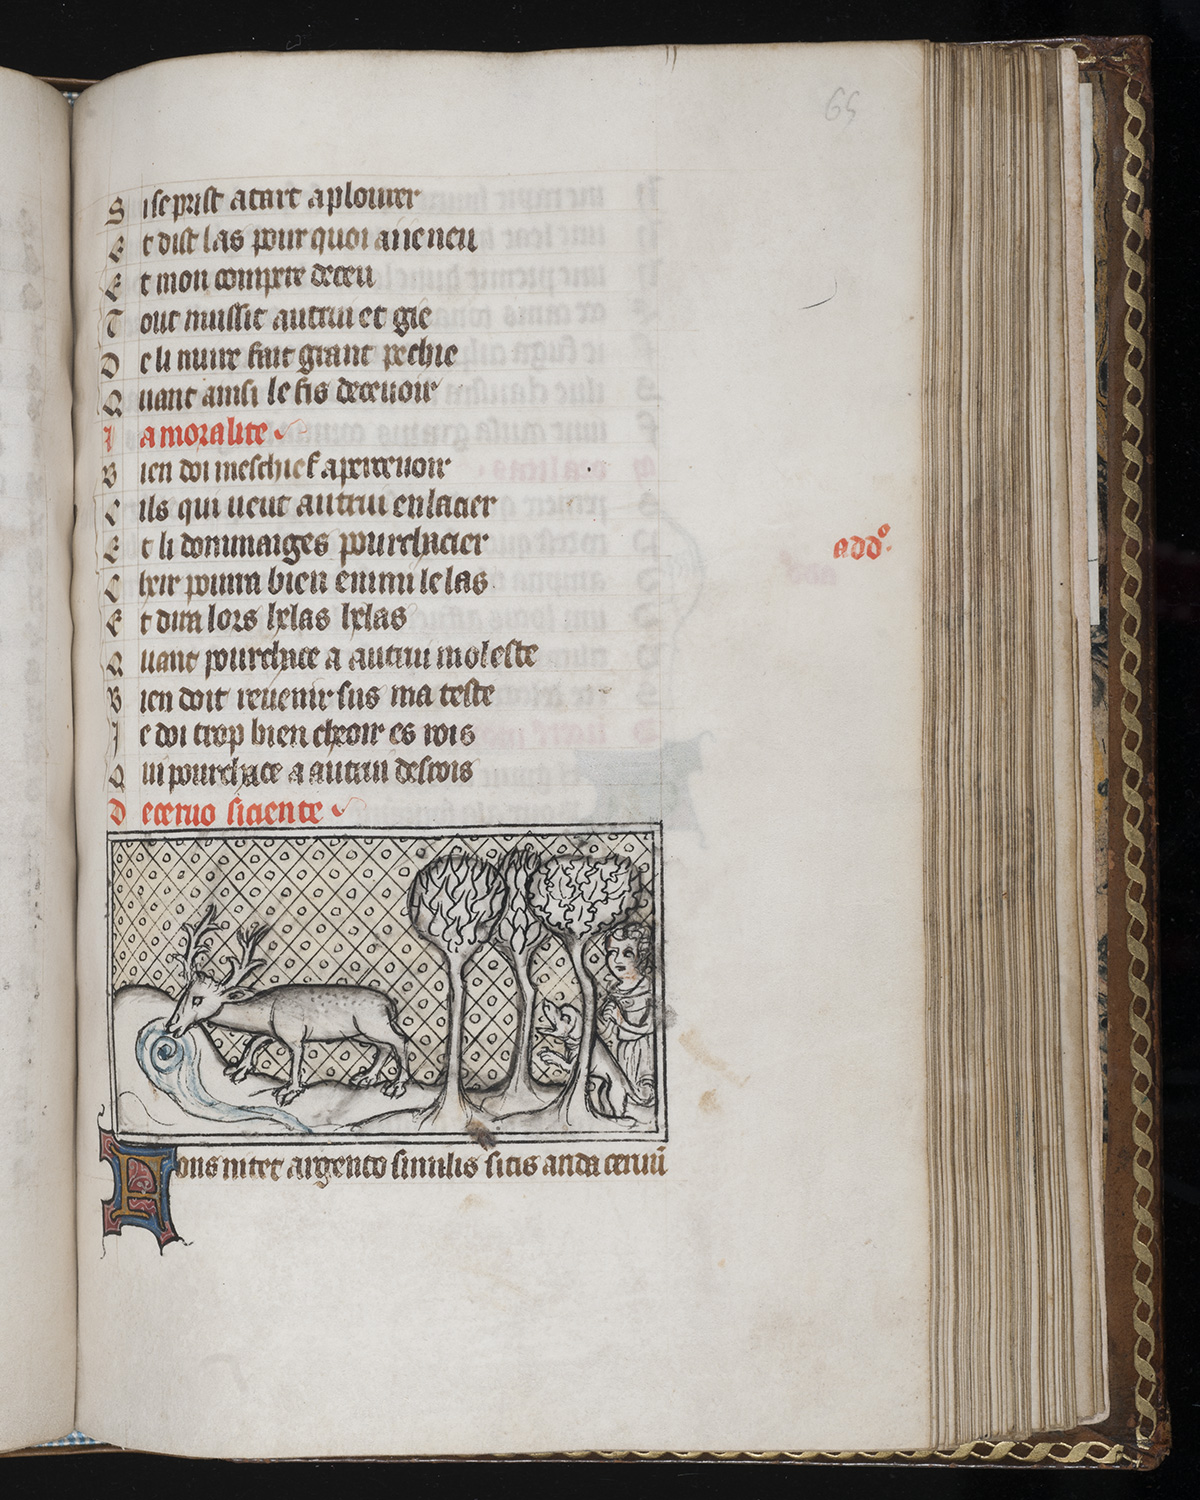 65
S i se prist a tart a plourer
E t dist las pour quoi ai ie neu
E t mon compere deceu
T out nuissit autrui et gie
D e li nuire fait grant pechie
Q uant ainsi le fis decevoir
L a moralite
B ien doi meschief apercevoir
C ils qui veut autrui enlacier
E t li dommaiges pourchacier
C heir pourra bien emmi le las
E t dira lors helas helas
Q uant pourchace a autrui moleste
B ien doit revenir sus ma teste
J e doi trop bien cheoir es rois
Q ui pourchace a autrui destrois
addo.
D e cervo siciente
Fons nitet argento similis sitis arida cervū